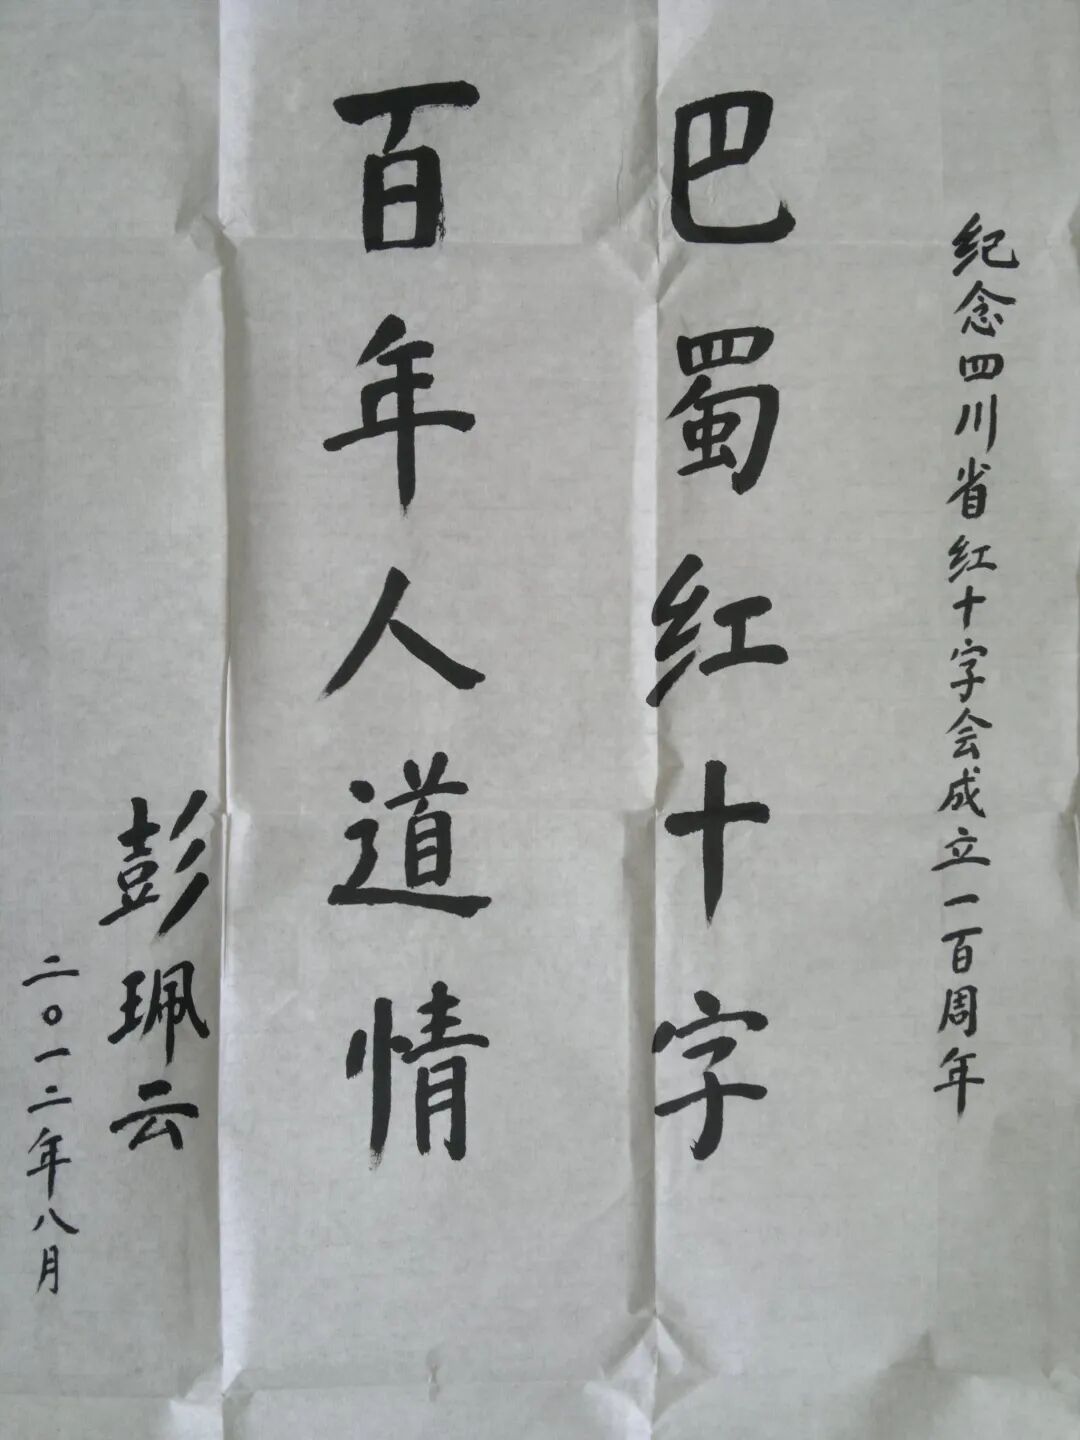 纪念四川省红十字会成立一百周年
巴蜀红十字
百年人道情
彭珮云
二〇一二年八月